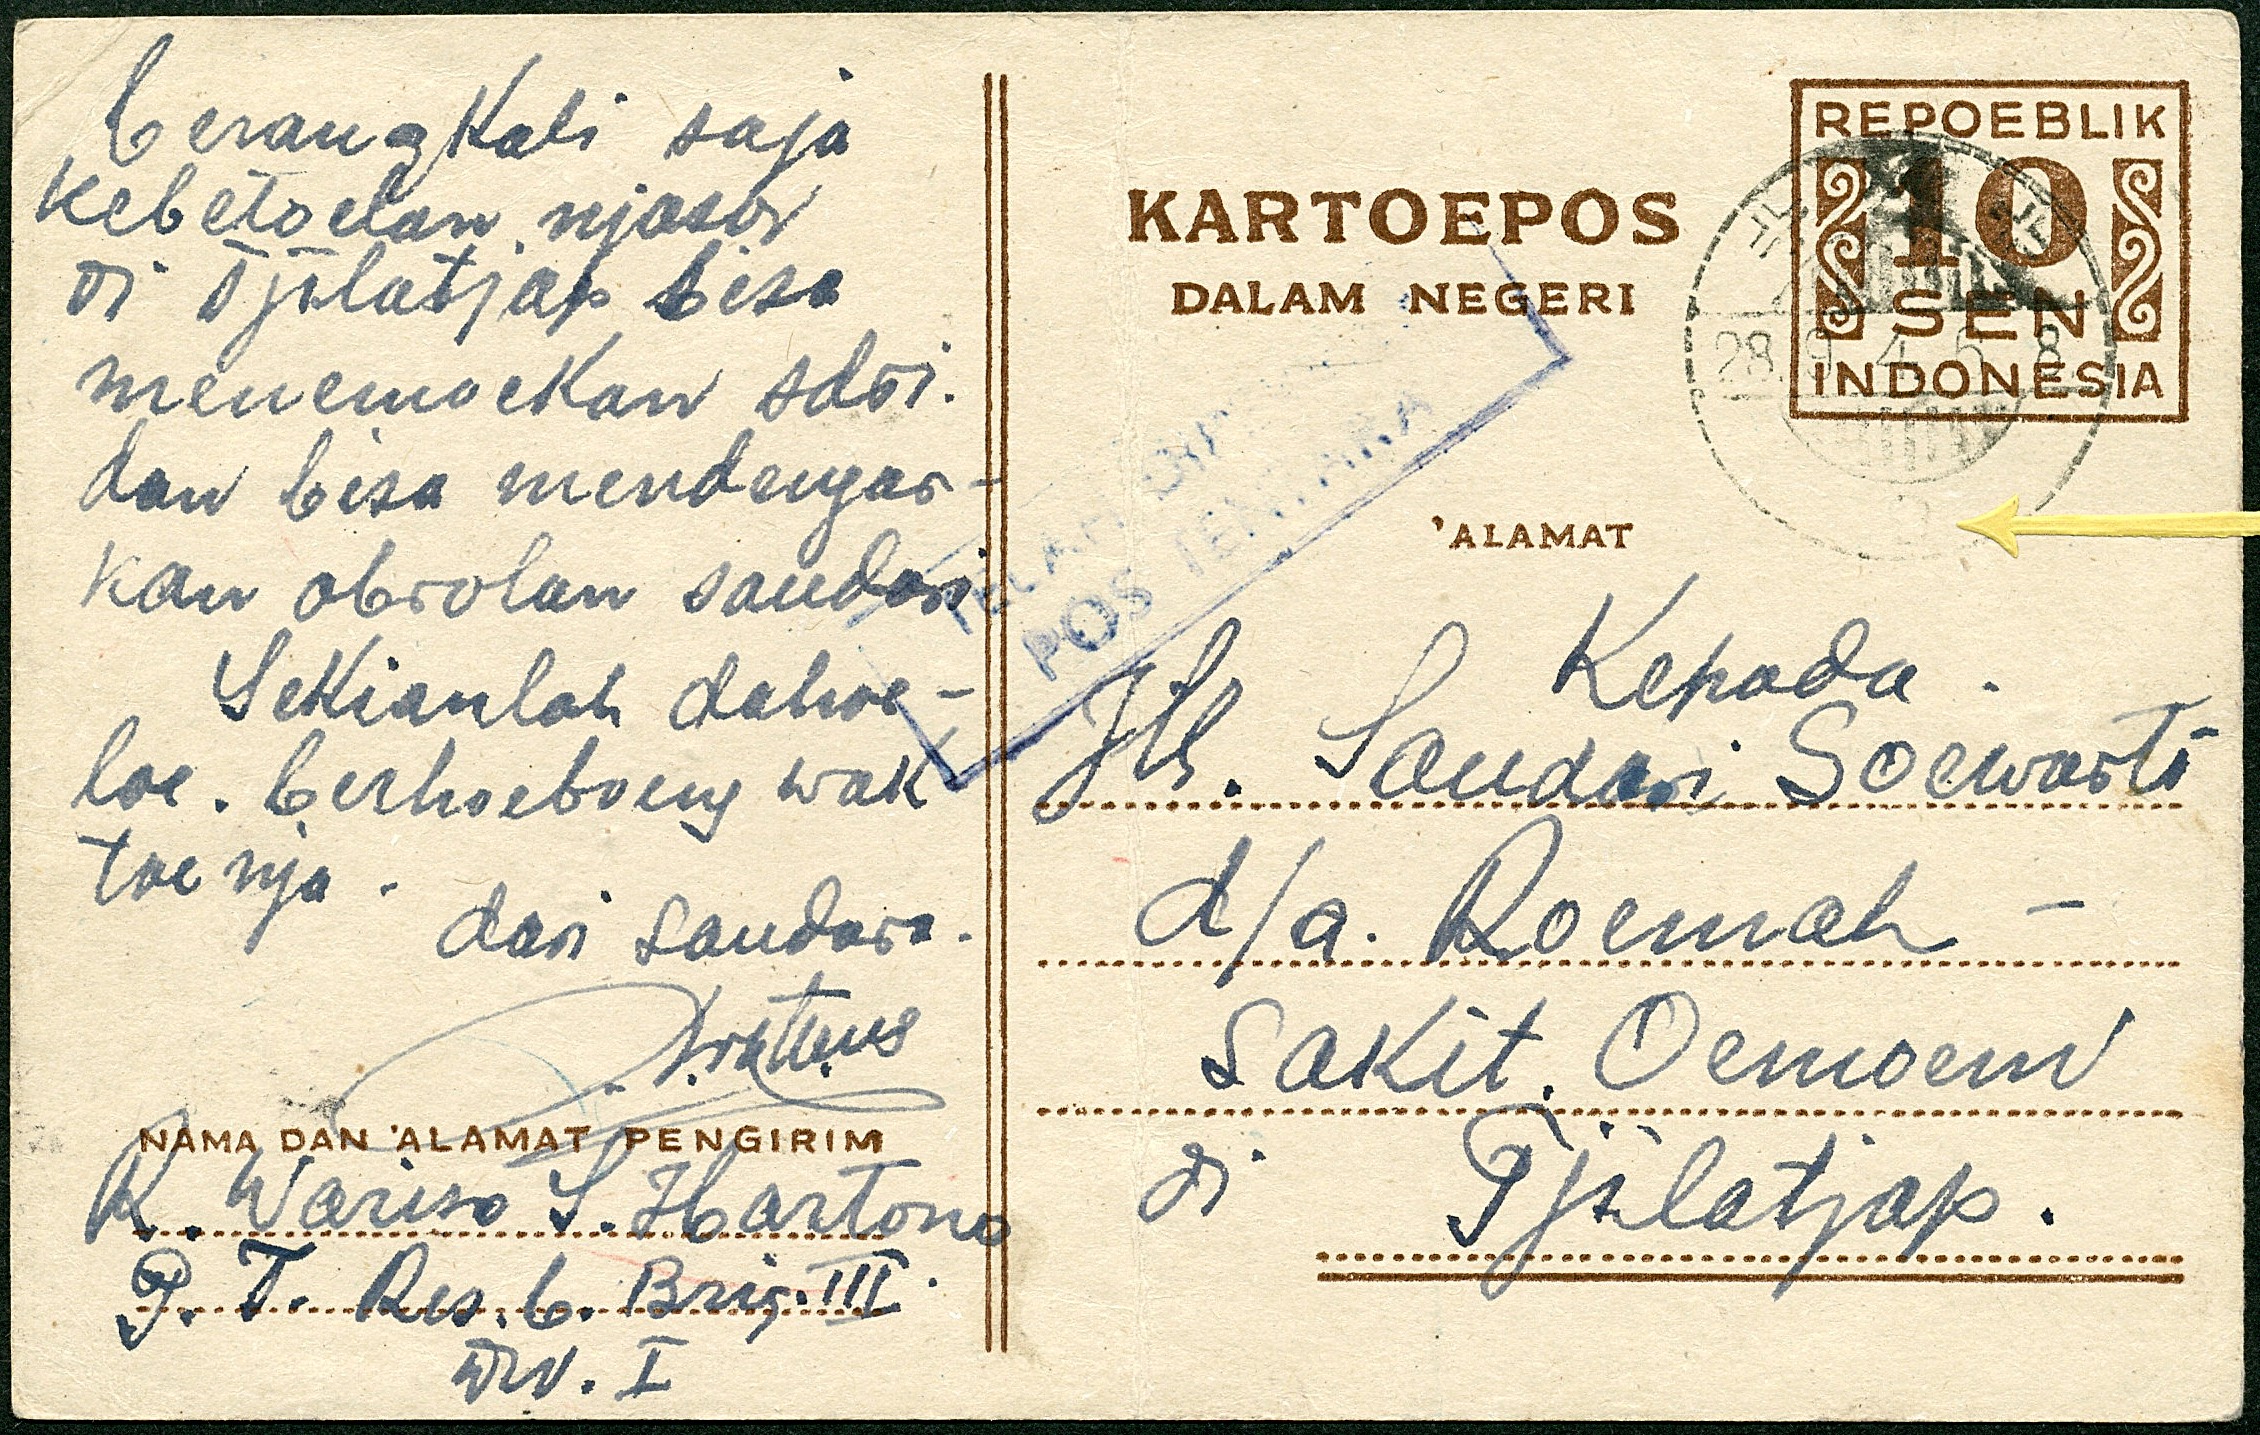 berangkali saja
kebetoelan njasar
di Tjilatjap bisa
menemoekan sdri.
dan bisa mendengar-
kan obrolan saudari
Sekianlah dahoe-
loe. berhoeboeng wak
toe nja.
dari saudara.
NAMA DAN 'ALAMAT PENGIRIM
K. Wariso S. Hartono
P. T. Res. 6. Brig. III.
Div. I
REPOEBLIK
10
SEN
INDONESIA
KARTOEPOS
DALAM NEGERI
28.9 4.5 8
TELAH
POS TENTARA
'ALAMAT
Kepada.
Jth. Saudari Soewarti
d/a. Roemah -
Sakit. Oemoem
di Tjilatjap.